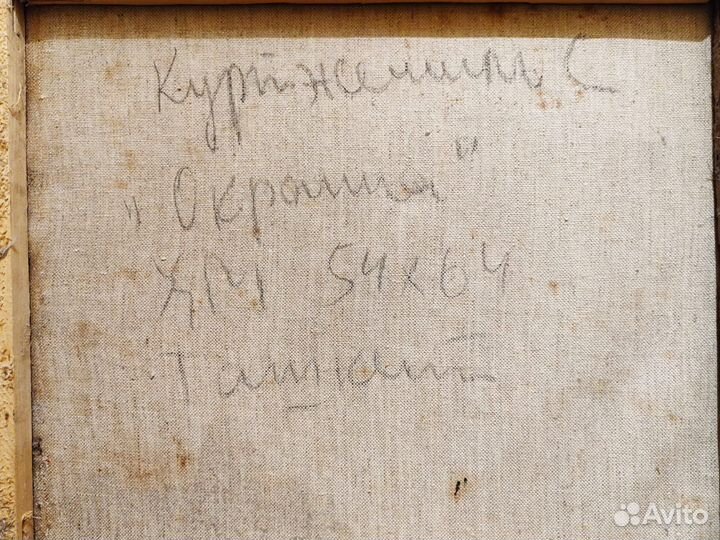 Курт-Желшил С
"Окраина"
х/м 54x64
Ташкент
Avito